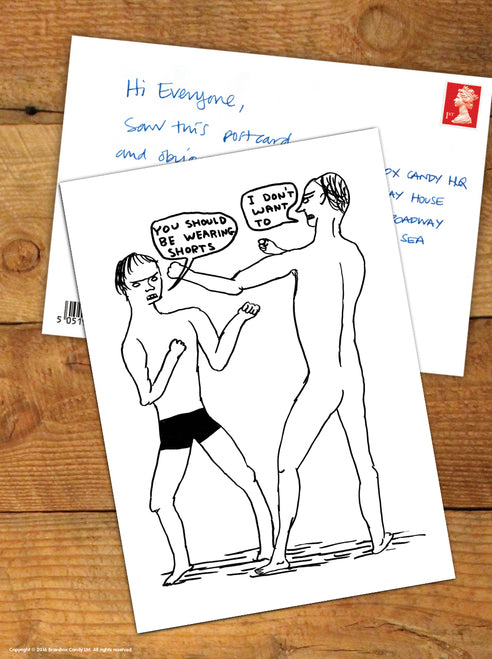 Hi Everyone,
Saw this postcard
and
CANDY HQ
HOUSE
SEA
1ST
YOU SHOULD
BE WEARING
SHORTS
I DON'T
WANT
TO
5 051
Copyright © 2016 Brainbox Candy Ltd. All rights reserved.